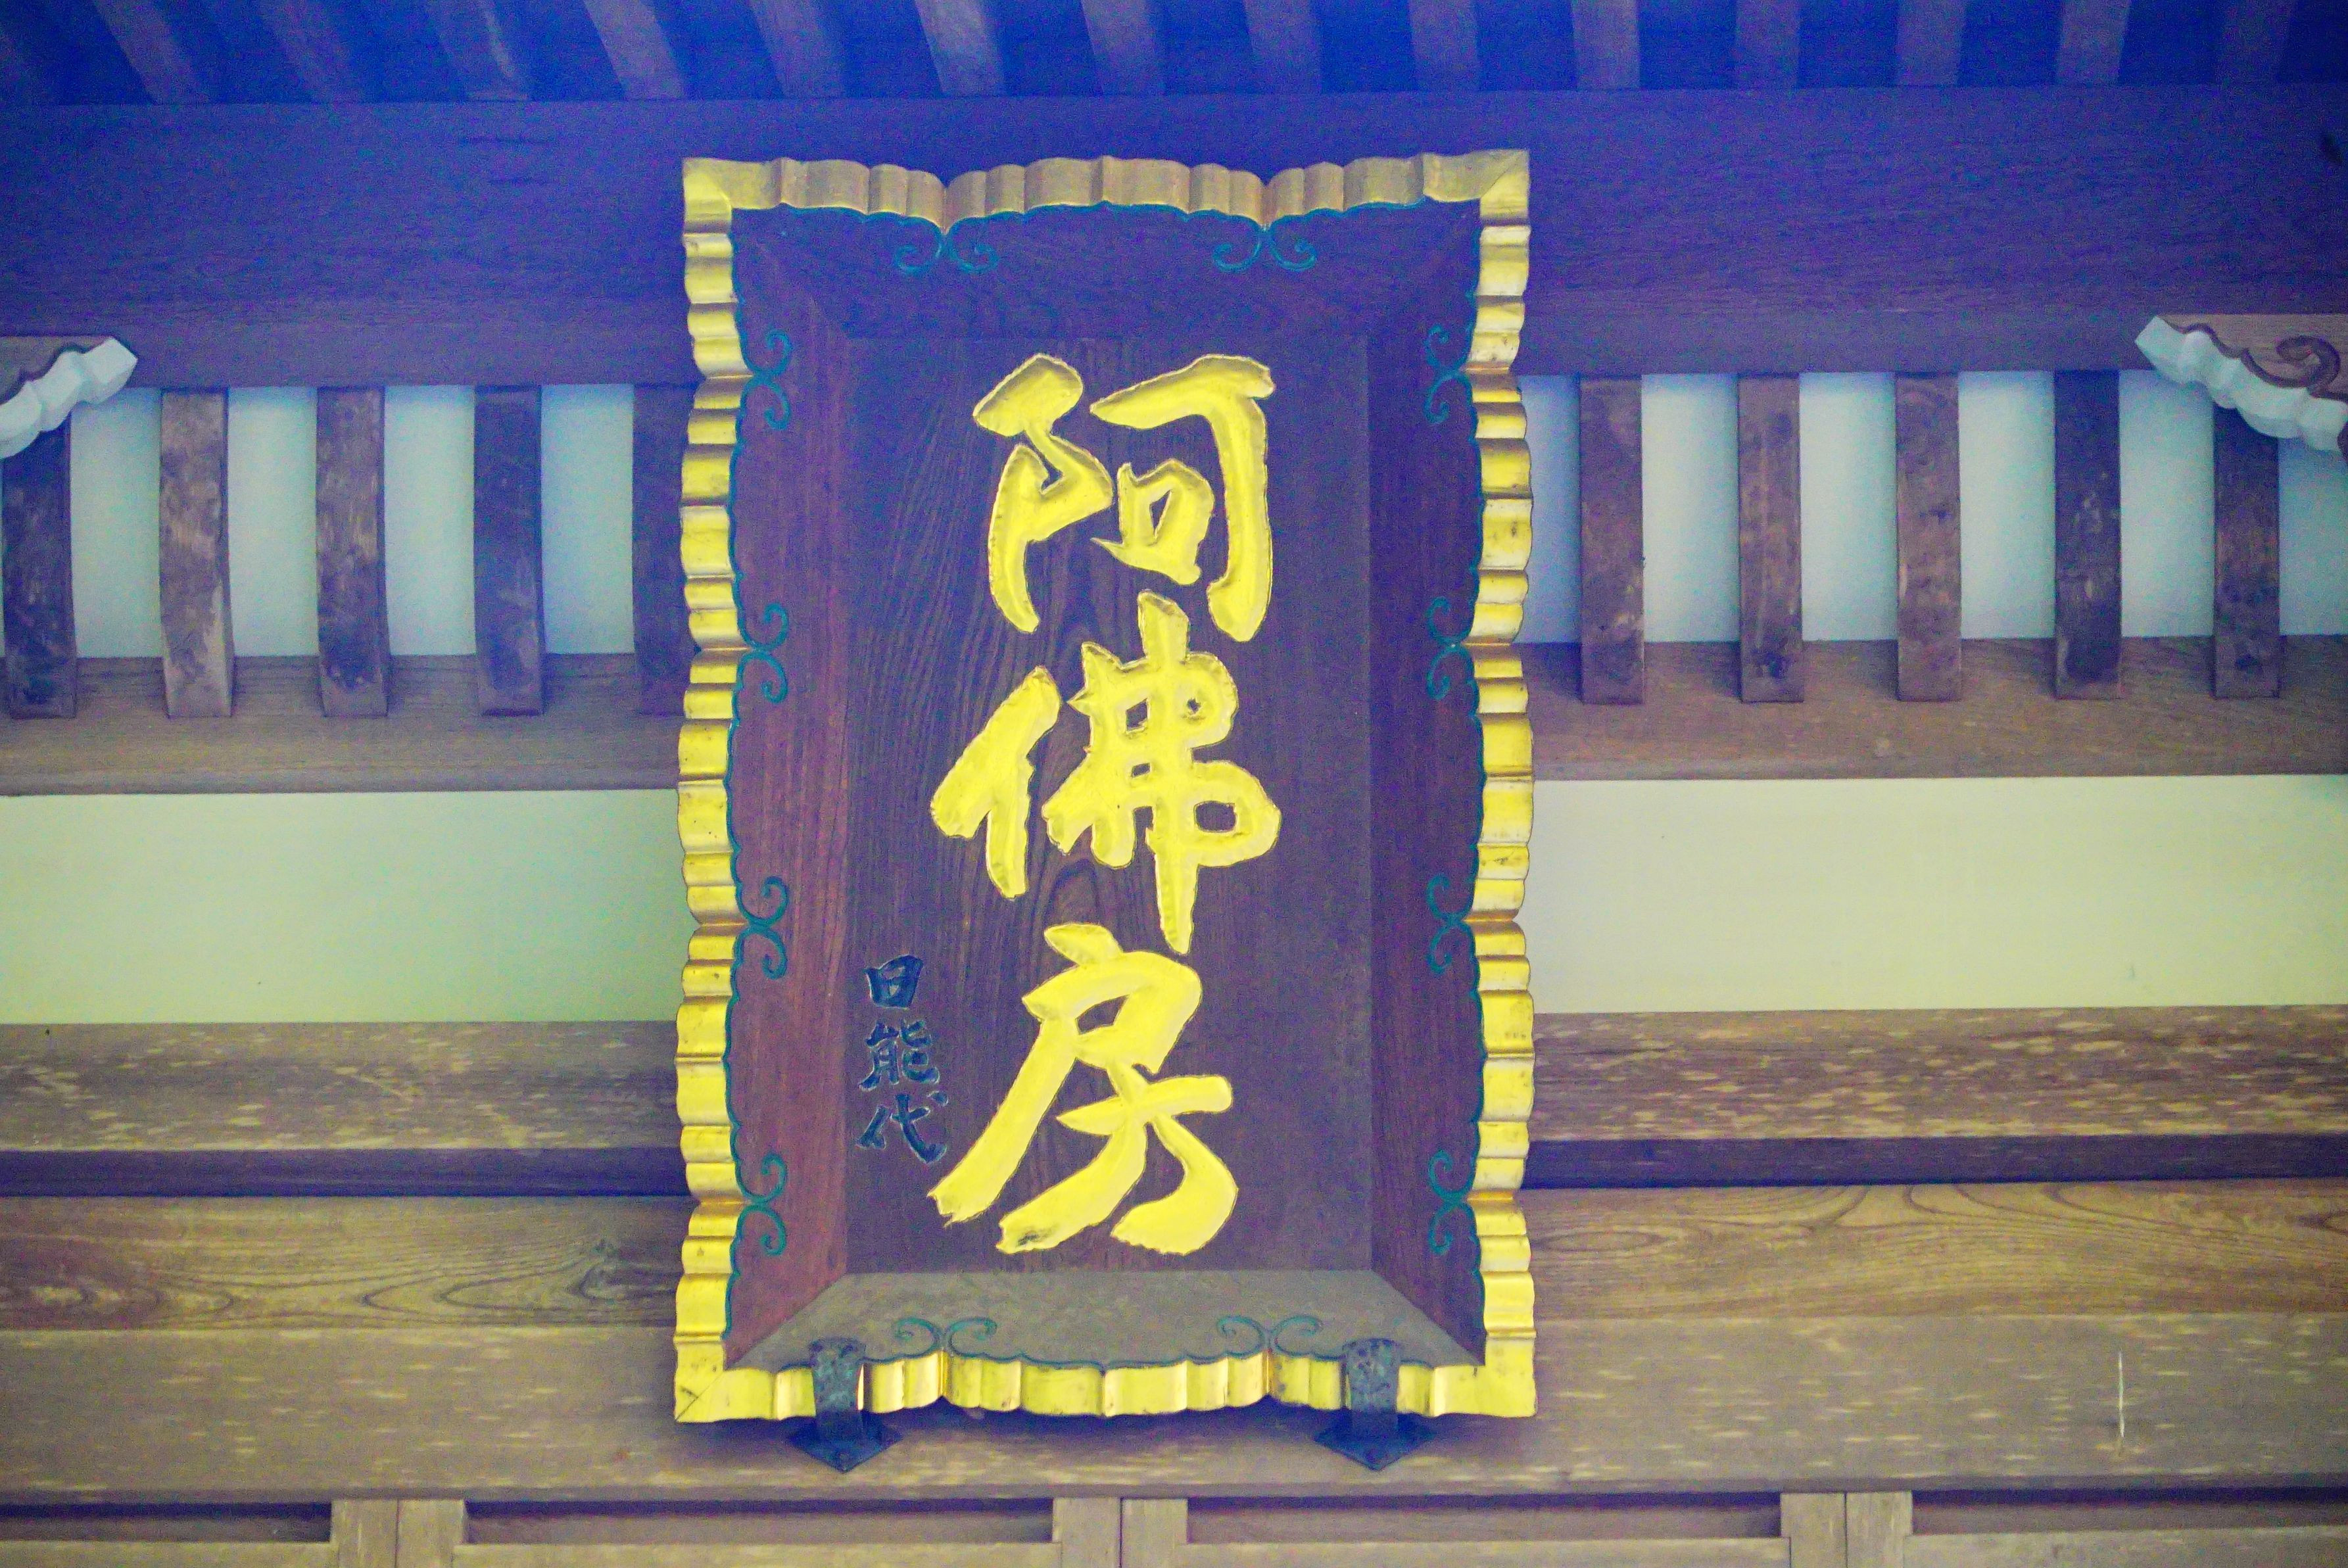 阿佛房
日能代